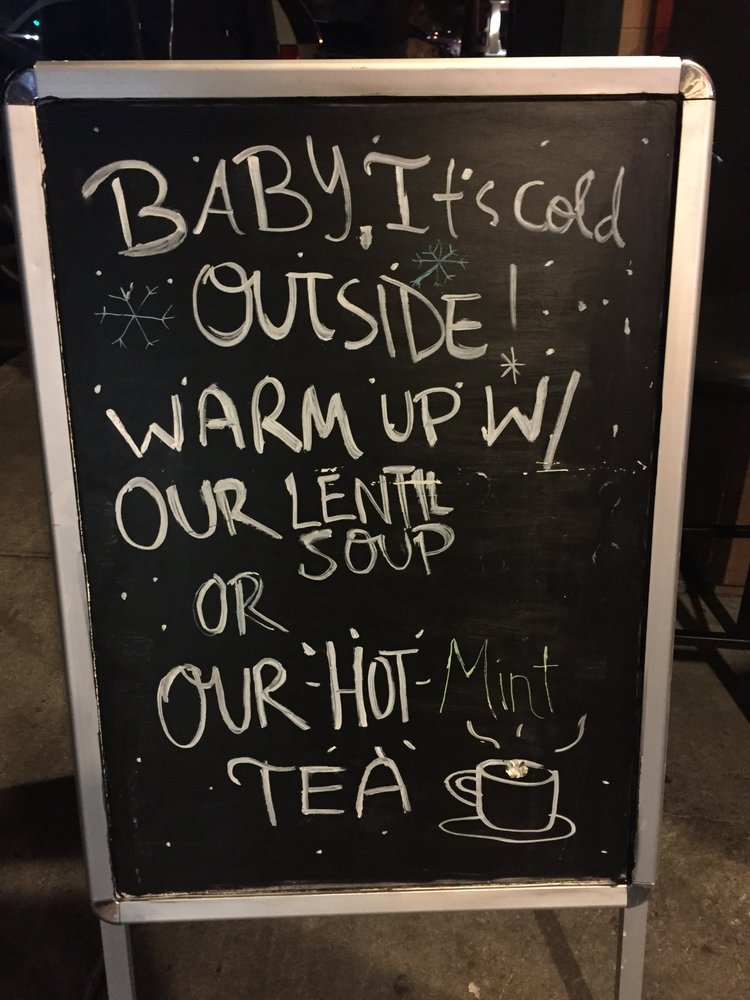 BABY, It's cold
OUTSIDE!
WARM UP W/
OUR LENTIL
SOUP
OR
OUR HOT Mint
TEA